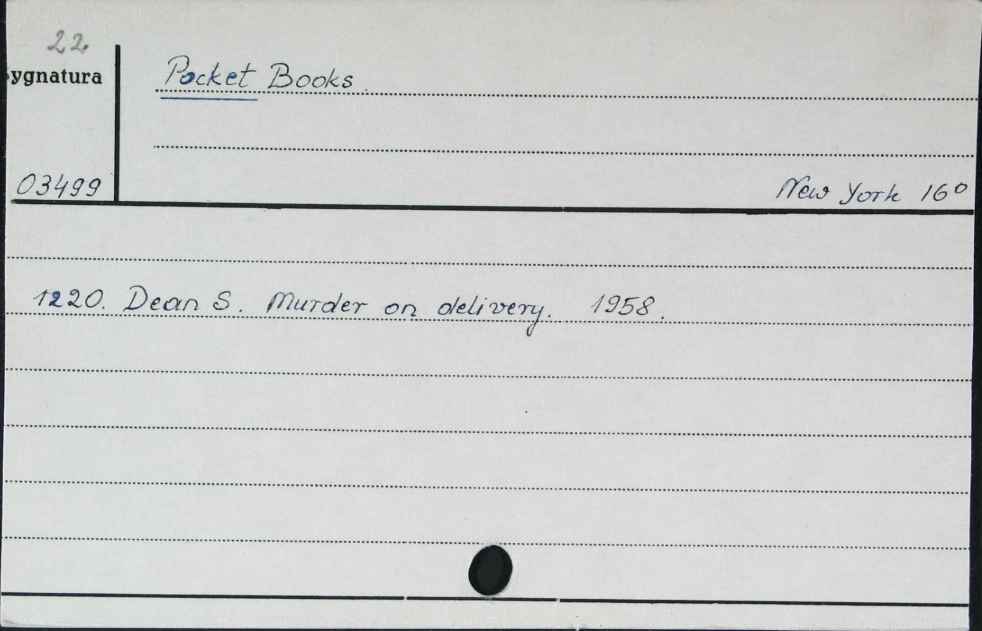 22
ygnatura
Pocket Books.
03499
New York 16°
1220. Dean S. Murder on delivery. 1958.